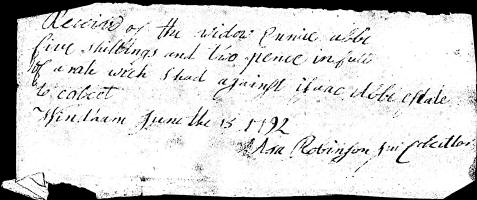 Received of the widow Eunice
five shillings and two pence in full
of a rate wich I had against isaac estate
to colect
Windham June the 15 1792
Asa Robinson Jur Colecttor